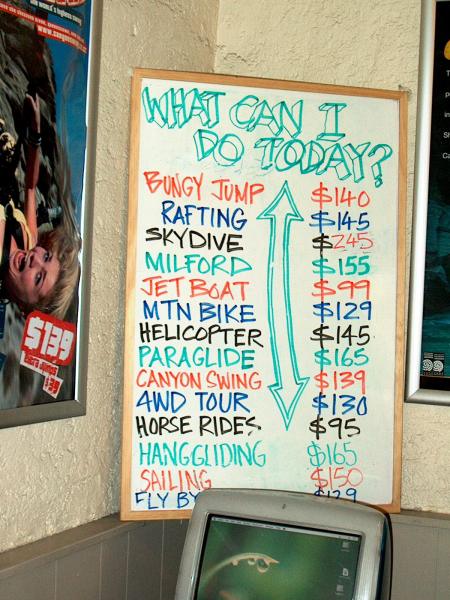 WHAT CAN I
DO TODAY?
BUNGY JUMP $140
RAFTING $145
SKYDIVE $245
MILFORD $155
JET BOAT $99
MTN BIKE $129
HELICOPTER $145
PARAGLIDE $165
CANYON SWING $139
4WD TOUR $130
HORSE RIDES $95
HANGGLIDING $165
SAILING $150
FLY BY $129
$139